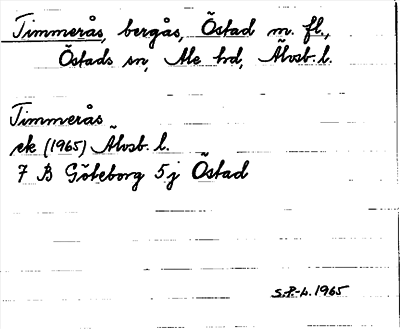 Timmerås, bergås, Östad m. fl.,
Östads sn, Ale hd, Älvsb. l.
Timmerås
ek (1965) Älvsb. l.
7 B Göteborg 5 j Östad
S.P.-L. 1965